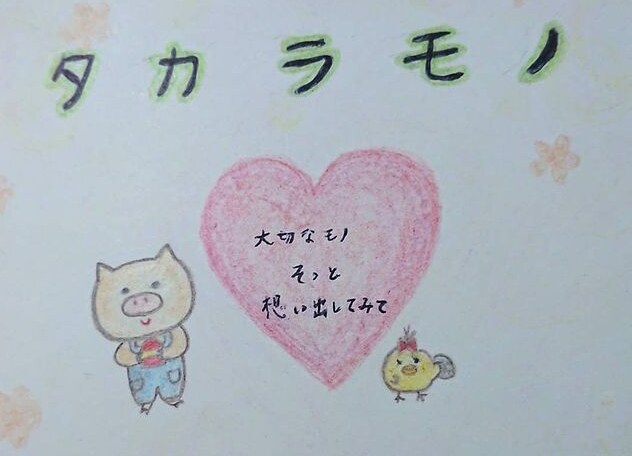 タカラモノ
大切なモノ
そっと
想い出してみて